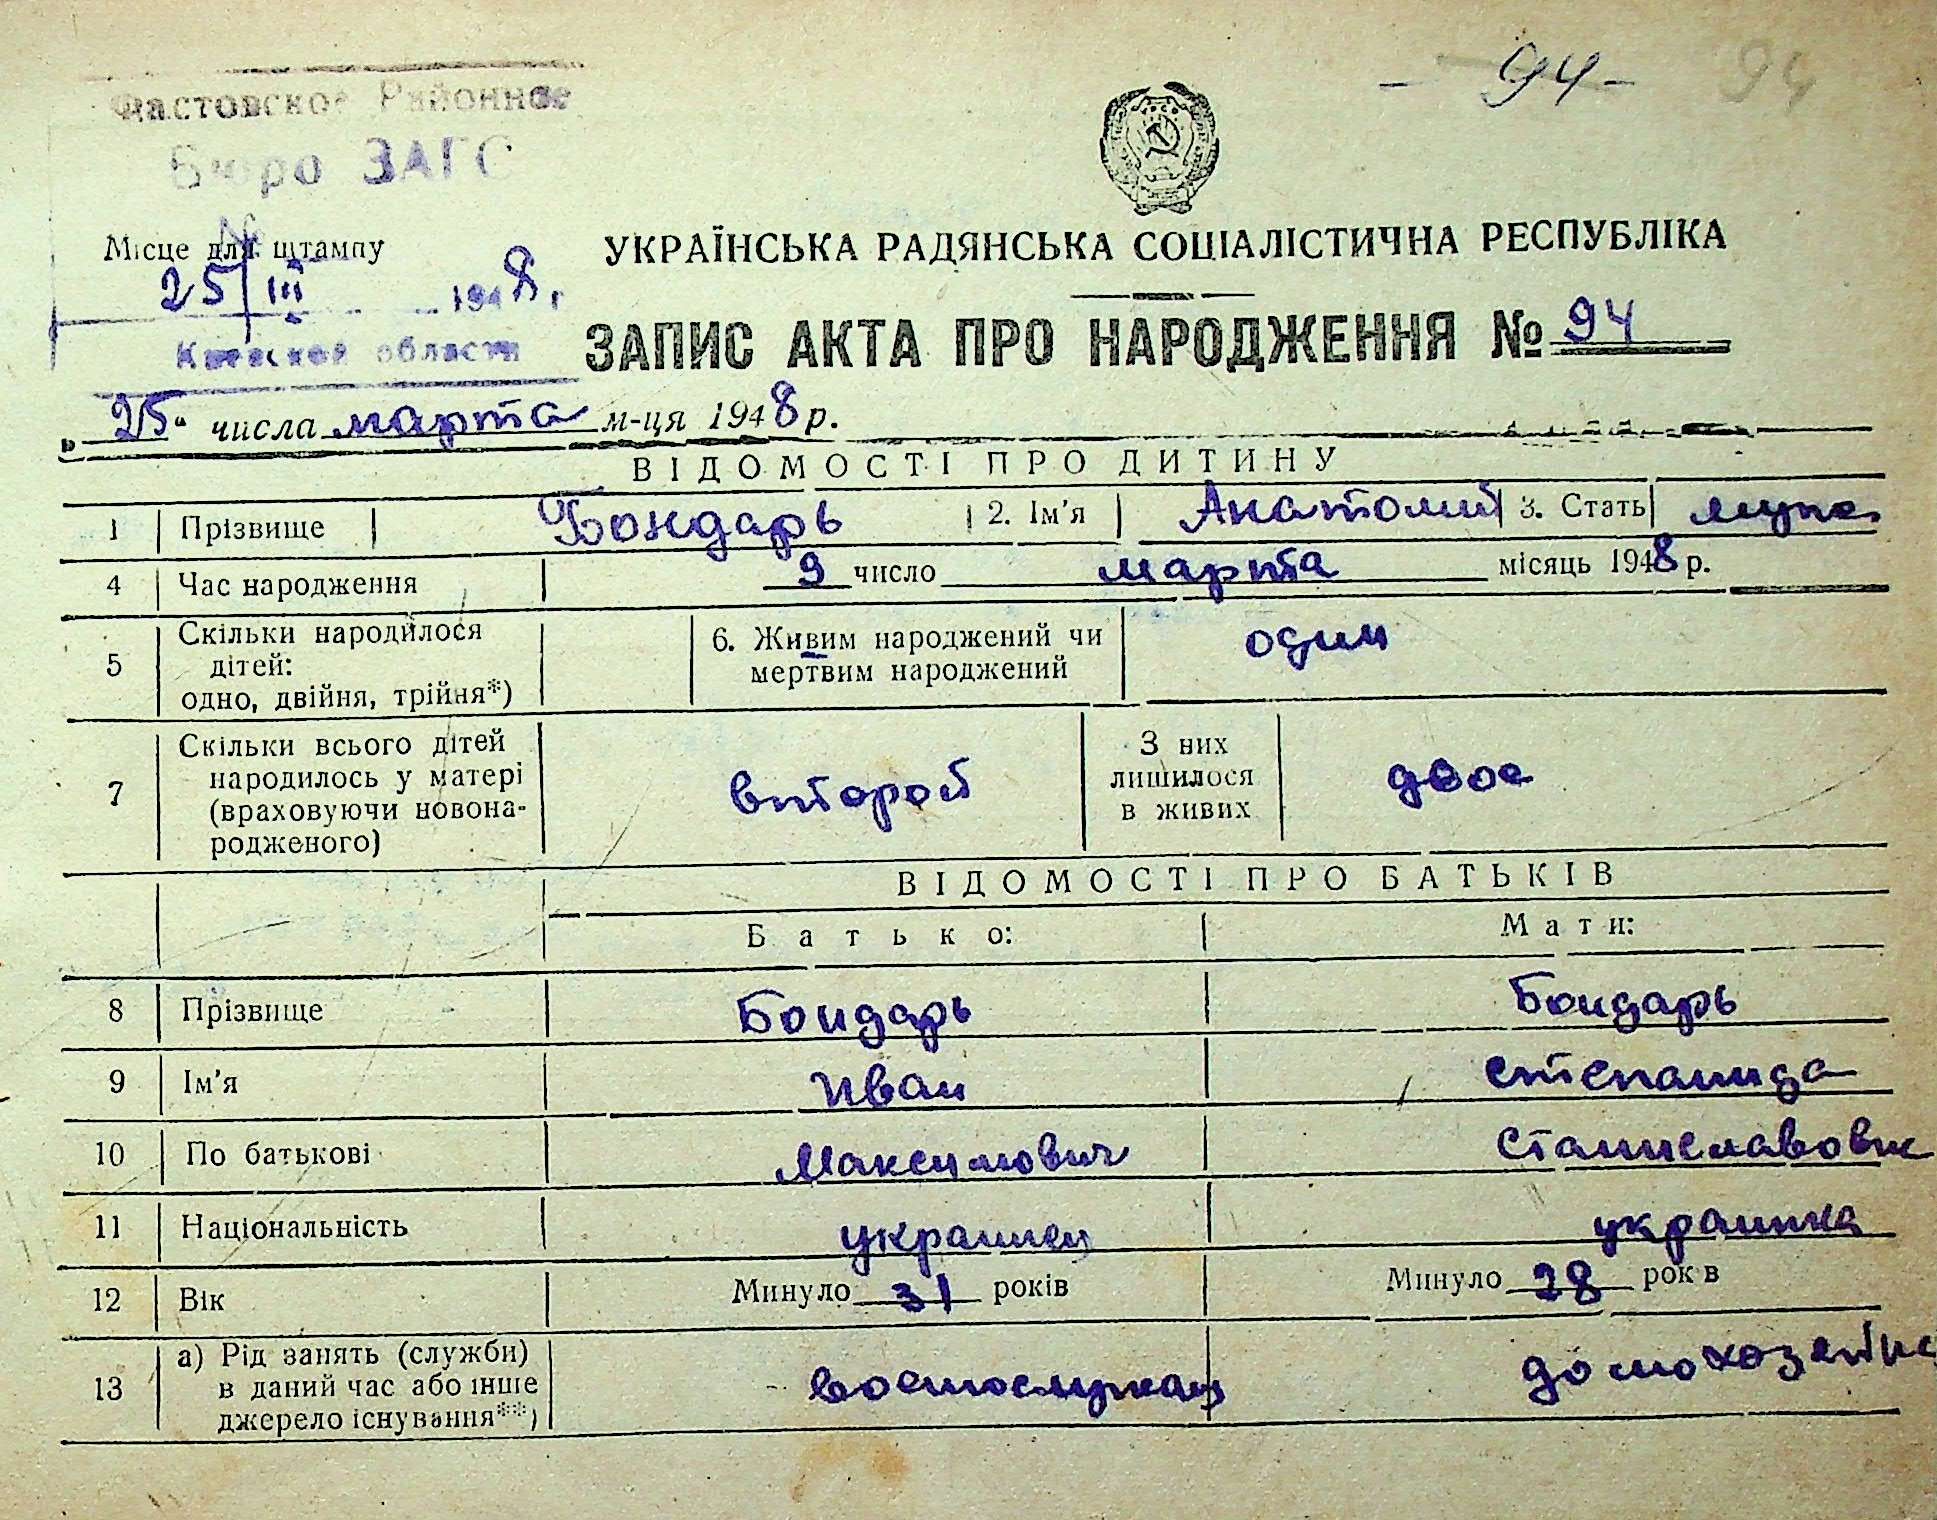 - 94 - 94
Фастовское Районное
Бюро ЗАГС
№
Місце для штампу
25/III 1948 г.
Киевской области
УКРАЇНСЬКА РАДЯНСЬКА СОЦІАЛІСТИЧНА РЕСПУБЛІКА
ЗАПИС АКТА ПРО НАРОДЖЕННЯ № 94
„25" числа марта м-ця 1948 р.
ВІДОМОСТІ ПРО ДИТИНУ
1 Прізвище Бондарь 2. Ім'я Анатолий 3. Стать муж
4 Час народження 9 число марта місяць 1948 р.
5 Скільки народилося дітей: одно, двійня, трійня*) 6. Живим народжений чи мертвим народжений один
7 Скільки всього дітей народилось у матері (враховуючи новонародженого) второй З них лишилося в живих двое
ВІДОМОСТІ ПРО БАТЬКІВ
Батько: Мати:
8 Прізвище Бондарь Бондарь
9 Ім'я Иван Степанида
10 По батькові Максимович Станиславовн
11 Національність украинец украинка
12 Вік Минуло 31 років Минуло 28 рок в
13 а) Рід занять (служби) в даний час або інше джерело існування**) военослужащ домохозяйка